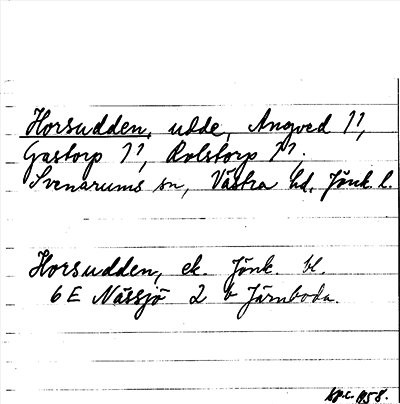 Horsudden, udde, Angved 1¹,
Gastorp 1¹, Rolstorp 1¹,
Svenarums sn, Västra hd, Jönk. l.
Horsudden, ek. Jönk. bl.
6 E Nässjö 2 b Järnboda.
1958.